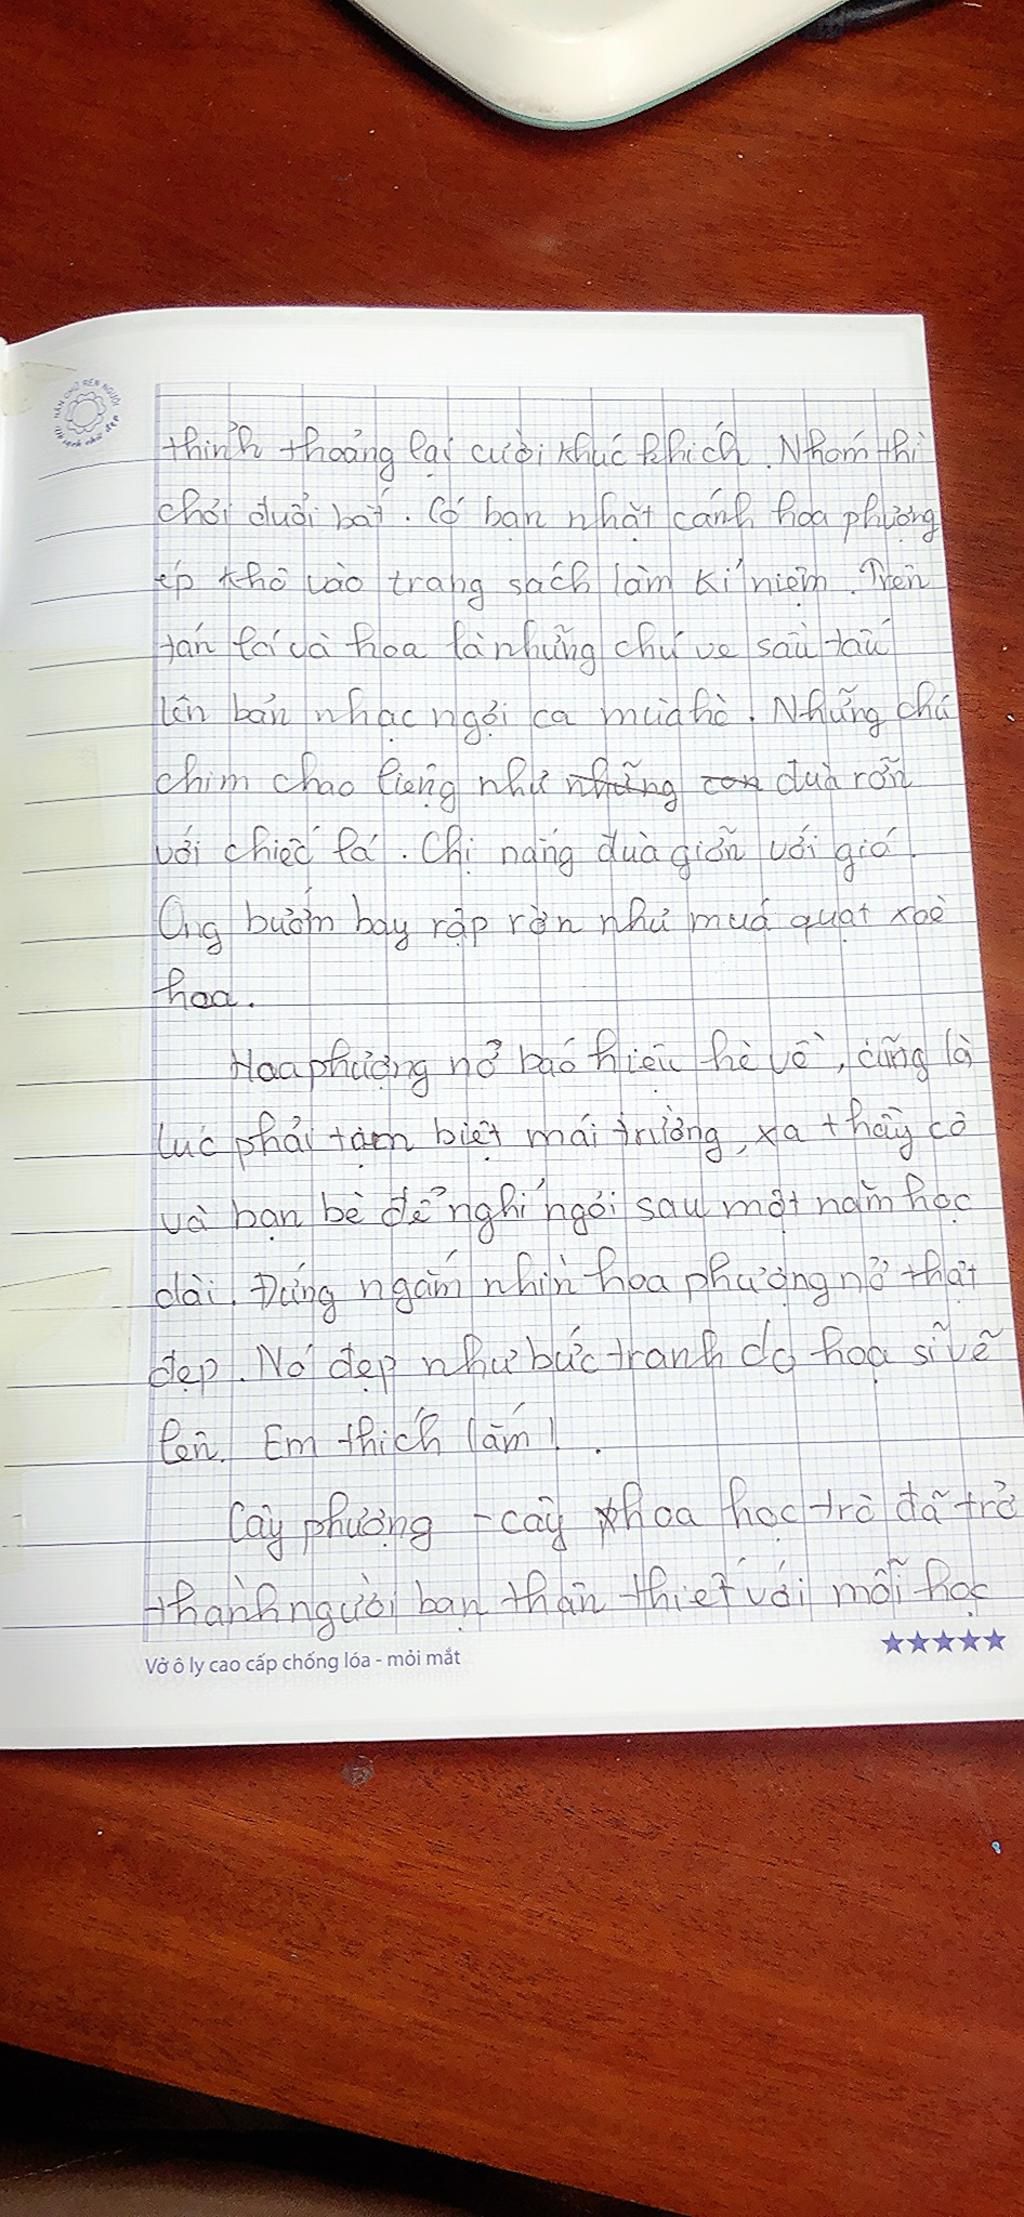 NÉT CHỮ RÈN NGƯỜI
thỉnh thoảng lại cười khúc khích. Nhóm thì
chơi đuổi bắt. Có bạn nhặt cánh hoa phượng
ép khô vào trang sách làm kỉ niệm. Trên
tán lá và hoa là những chú ve sầu tấu
lên bản nhạc ngợi ca mùa hè. Những chú
chim chao liệng như những con đùa rỡn
với chiếc lá. Chị nắng đùa giỡn với gió.
Ong bướm bay rập rờn như múa quạt xoè
hoa.
Hoa phượng nở báo hiệu hè về, cũng là
lúc phải tạm biệt mái trường, xa thầy cô
và bạn bè để nghỉ ngơi sau một năm học
dài. Đứng ngắm nhìn hoa phượng nở thật
đẹp. Nó đẹp như bức tranh do hoạ sĩ vẽ
lên. Em thích lắm!.
Cây phượng - cây hoa học trò đã trở
thành người bạn thân thiết với mỗi học
Vở ô ly cao cấp chống lóa - mỏi mắt